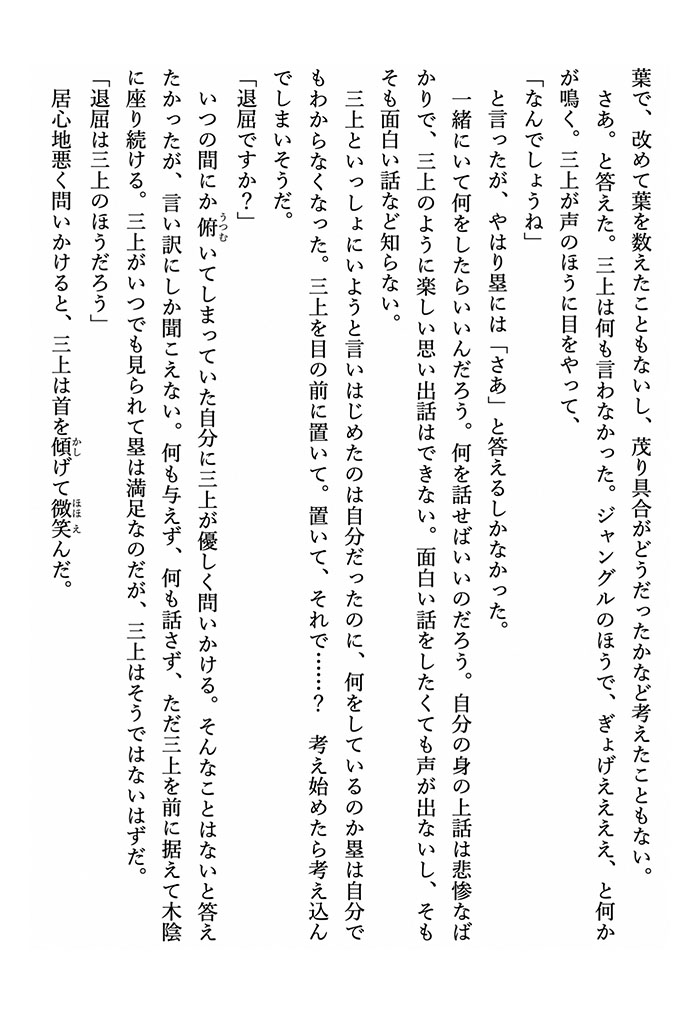 葉で、改めて葉を数えたこともないし、茂り具合がどうだったかなど考えたこともない。
　さあ。と答えた。三上は何も言わなかった。ジャングルのほうで、ぎょげえええ、と何か
が鳴く。三上が声のほうに目をやって、
「なんでしょうね」
　と言ったが、やはり塁には「さあ」と答えるしかなかった。
　一緒にいて何をしたらいいんだろう。何を話せばいいのだろう。自分の身の上話は悲惨なば
かりで、三上のように楽しい思い出話はできない。面白い話をしたくても声が出ないし、そも
そも面白い話など知らない。
　三上といっしょにいようと言いはじめたのは自分だったのに、何をしているのか塁は自分で
もわからなくなった。三上を目の前に置いて。置いて、それで……？　考え始めたら考え込ん
でしまいそうだ。
「退屈ですか？」
　いつの間にか俯いてしまっていた自分に三上が優しく問いかける。そんなことはないと答え
たかったが、言い訳にしか聞こえない。何も与えず、何も話さず、ただ三上を前に据えて木陰
に座り続ける。三上がいつでも見られて塁は満足なのだが、三上はそうではないはずだ。
「退屈は三上のほうだろう」
　居心地悪く問いかけると、三上は首を傾げて微笑んだ。
うつむ
かし
ほほえ